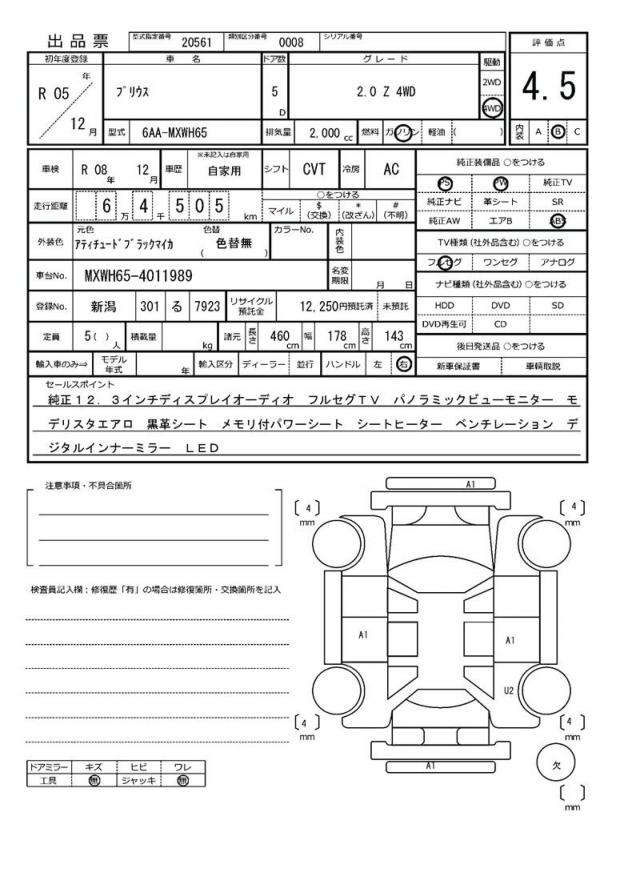 出品票
型式指定番号 20561 類別区分番号 0008 シリアル番号
評価点
4.5
初年度登録 車名 ドア数 グレード 駆動
R 05 年 12 月
プリウス
5 D
2.0 Z 4WD
2WD
4WD
型式 6AA-MXWH65 排気量 2,000 cc 燃料 ガソリン 軽油 ( )
内装 A B C
車検 R 08 年 12 月 車歴 ※未記入は自家用 自家用 シフト CVT 冷房 AC
走行距離 6 万 4 千 5 0 5 km
○をつける
マイル $(交換) *(改ざん) #(不明)
外装色 元色 アティチュードブラックマイカ 色替 ( 色替無 ) カラーNo. 内装色
車台No. MXWH65-4011989 名変期限 月 日
登録No. 新潟 301 る 7923 リサイクル預託金 12,250円預託済 未預託
定員 5( ) 人 積載量 kg 諸元 長さ 460 cm 幅 178 cm 高さ 143 cm
輸入車のみ⇒ モデル年式 年 輸入区分 ディーラー 並行 ハンドル 左 右
純正装備品 ○をつける
PS PW 純正TV
純正ナビ 革シート SR
純正AW エアB ABS
TV種類(社外品含む) ○をつける
フルセグ ワンセグ アナログ
ナビ種類(社外品含む) ○をつける
HDD DVD SD
DVD再生可 CD
後日発送品 ○をつける
新車保証書 車輌取説
セールスポイント
純正12.3インチディスプレイオーディオ フルセグTV パノラミックビューモニター モ
デリスタエアロ 黒革シート メモリ付パワーシート シートヒーター ベンチレーション デ
ジタルインナーミラー LED
注意事項・不具合箇所
検査員記入欄:修復歴「有」の場合は修復箇所・交換箇所を記入
ドアミラー キズ ヒビ ワレ
工具 無 ジャッキ 無
A1
[ 4 ] mm
[ 4 ] mm
A1
A1
U2
[ 4 ] mm
[ 4 ] mm
A1
欠
[ ] mm